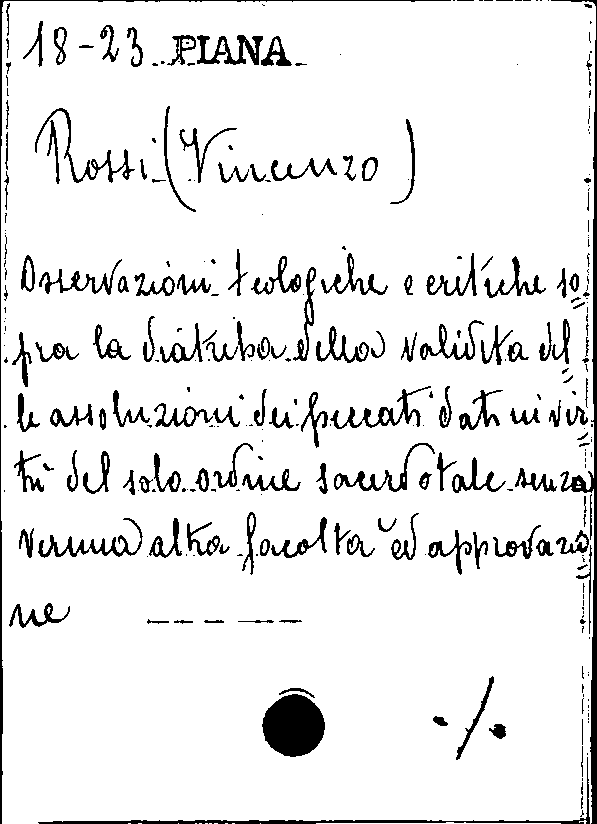 18-23 PIANA
Rossi (Vincenzo)
Osservazioni teologiche e critiche so=
pra la diatriba della validità del=
le assoluzioni dei peccati dati in vir=
tù del solo ordine sacerdotale senza
veruna altra facoltà ed approvazio=
ne -----
·/.